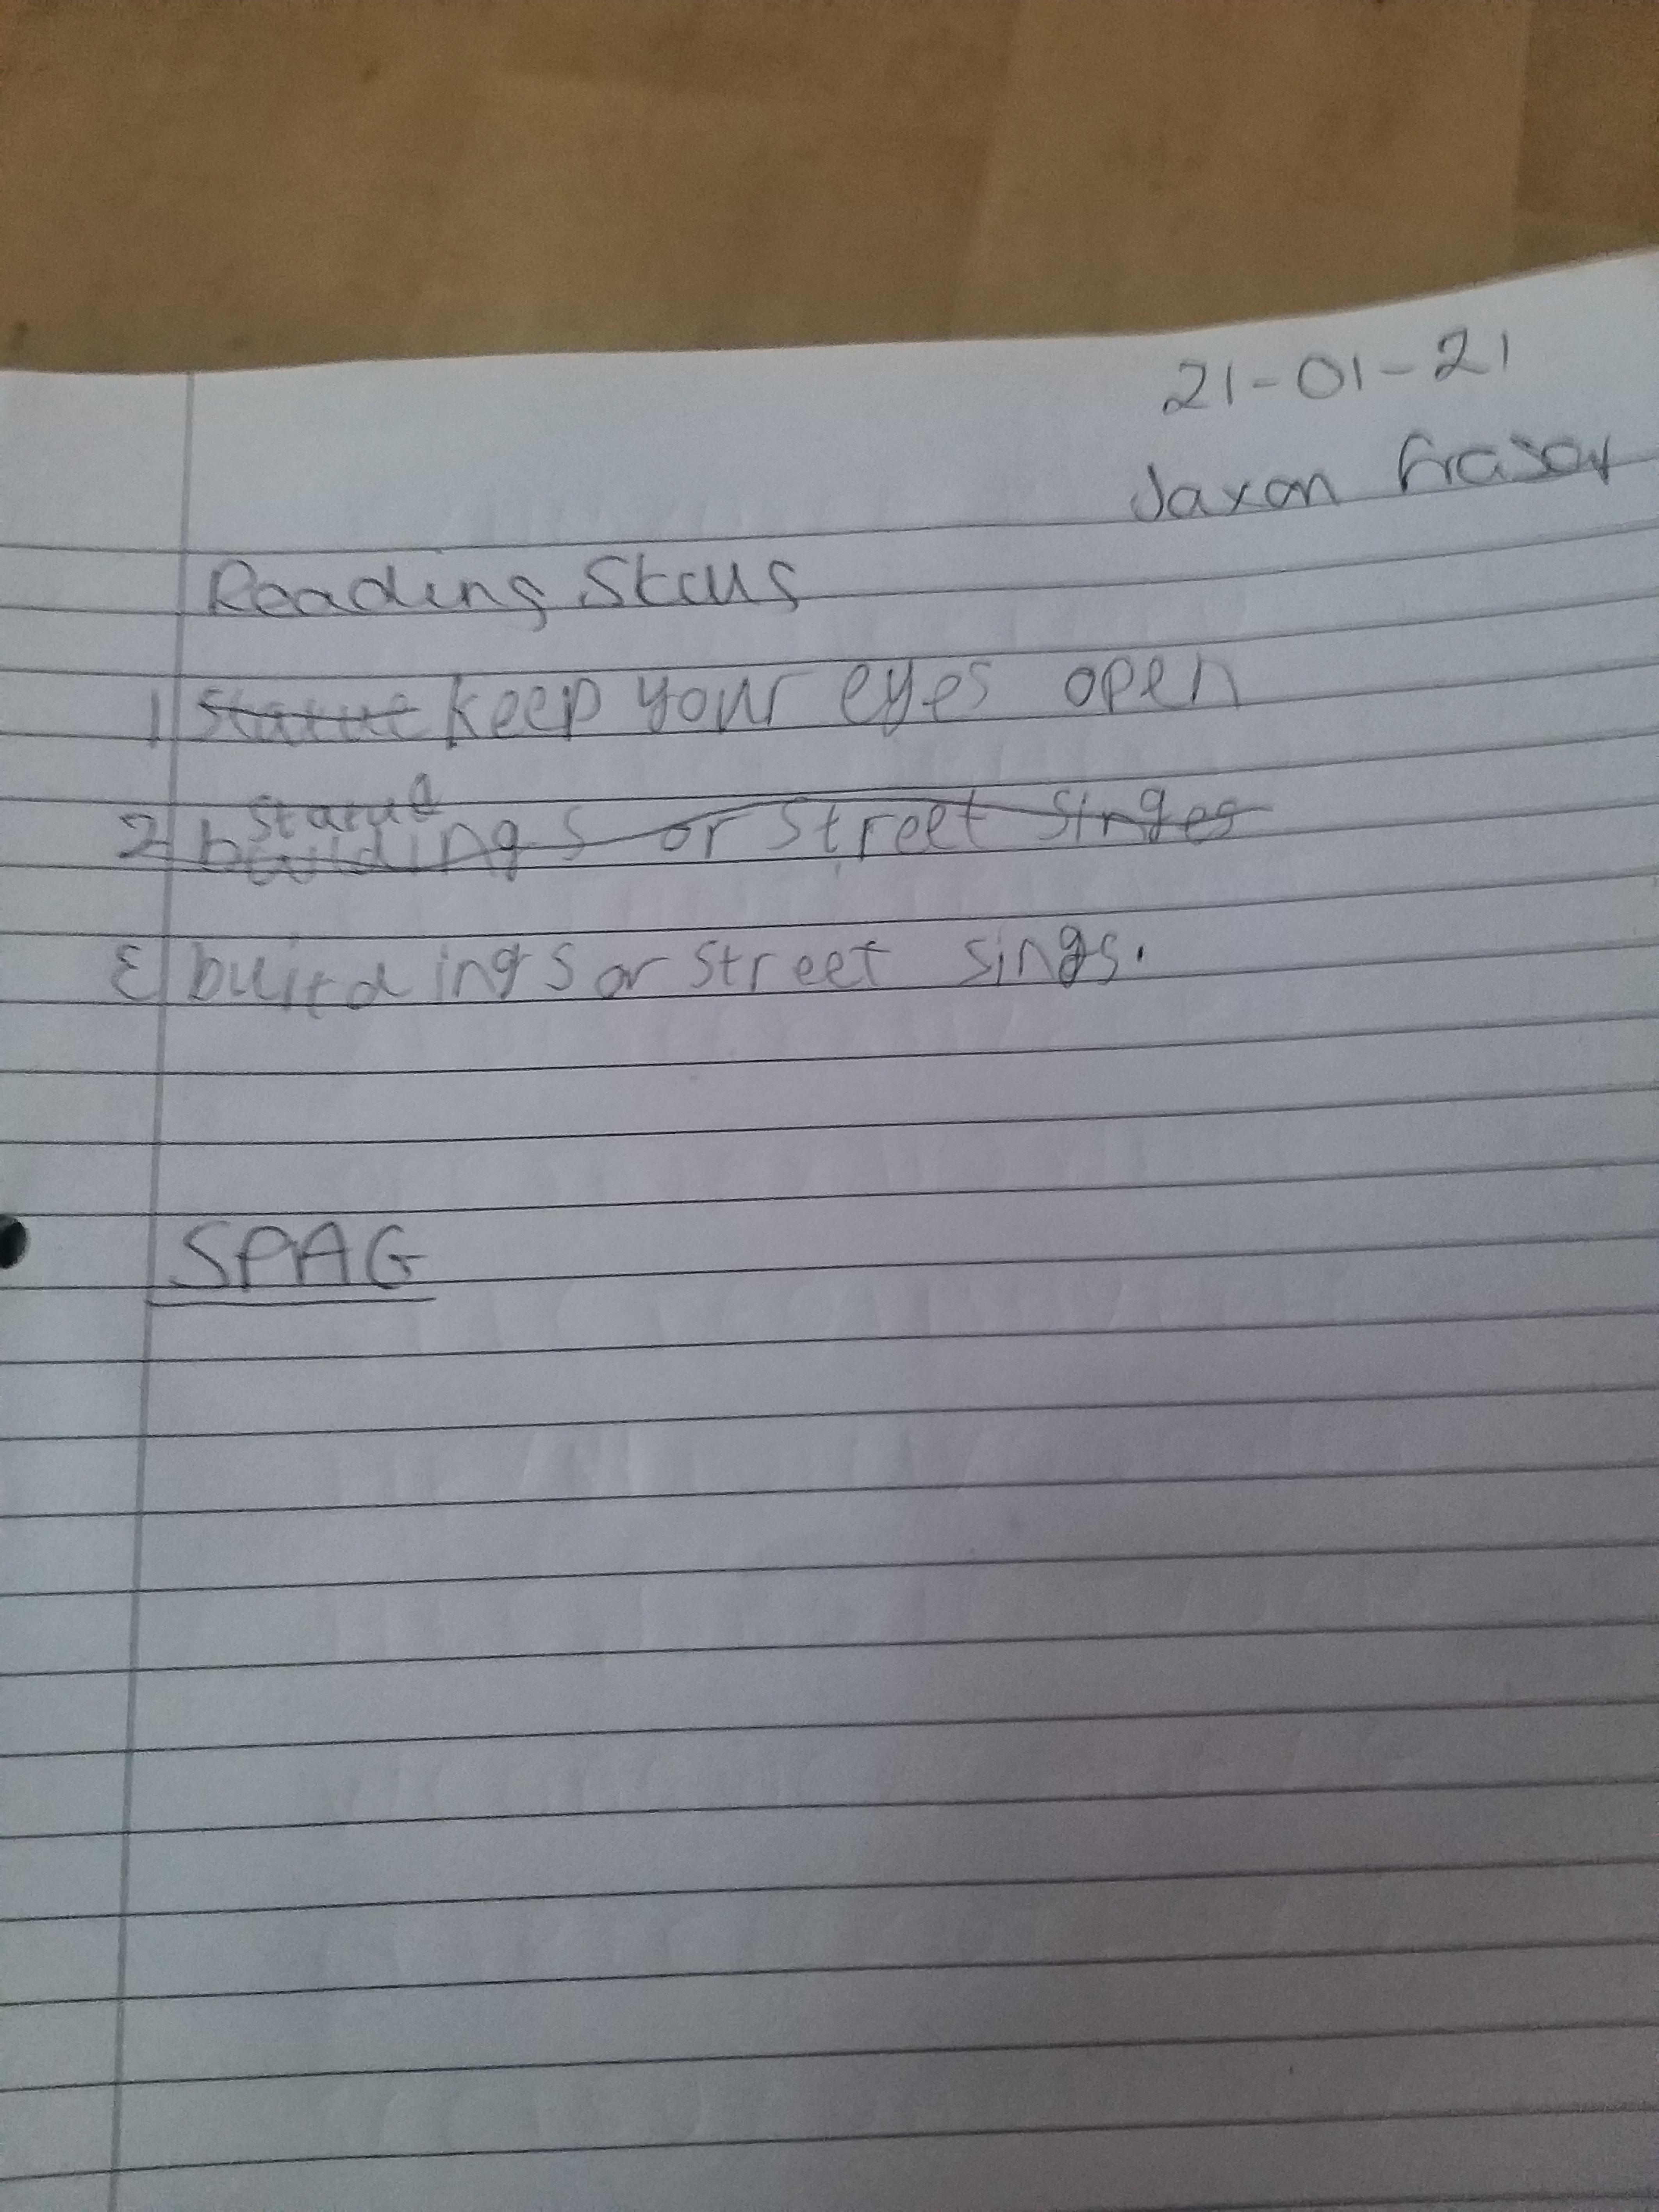 21-01-21
Jaxon Fraser
Reading Skills
1 statue keep your eyes open
statue
2 buildings or street singes
3 buildings or street sings.
SPAG